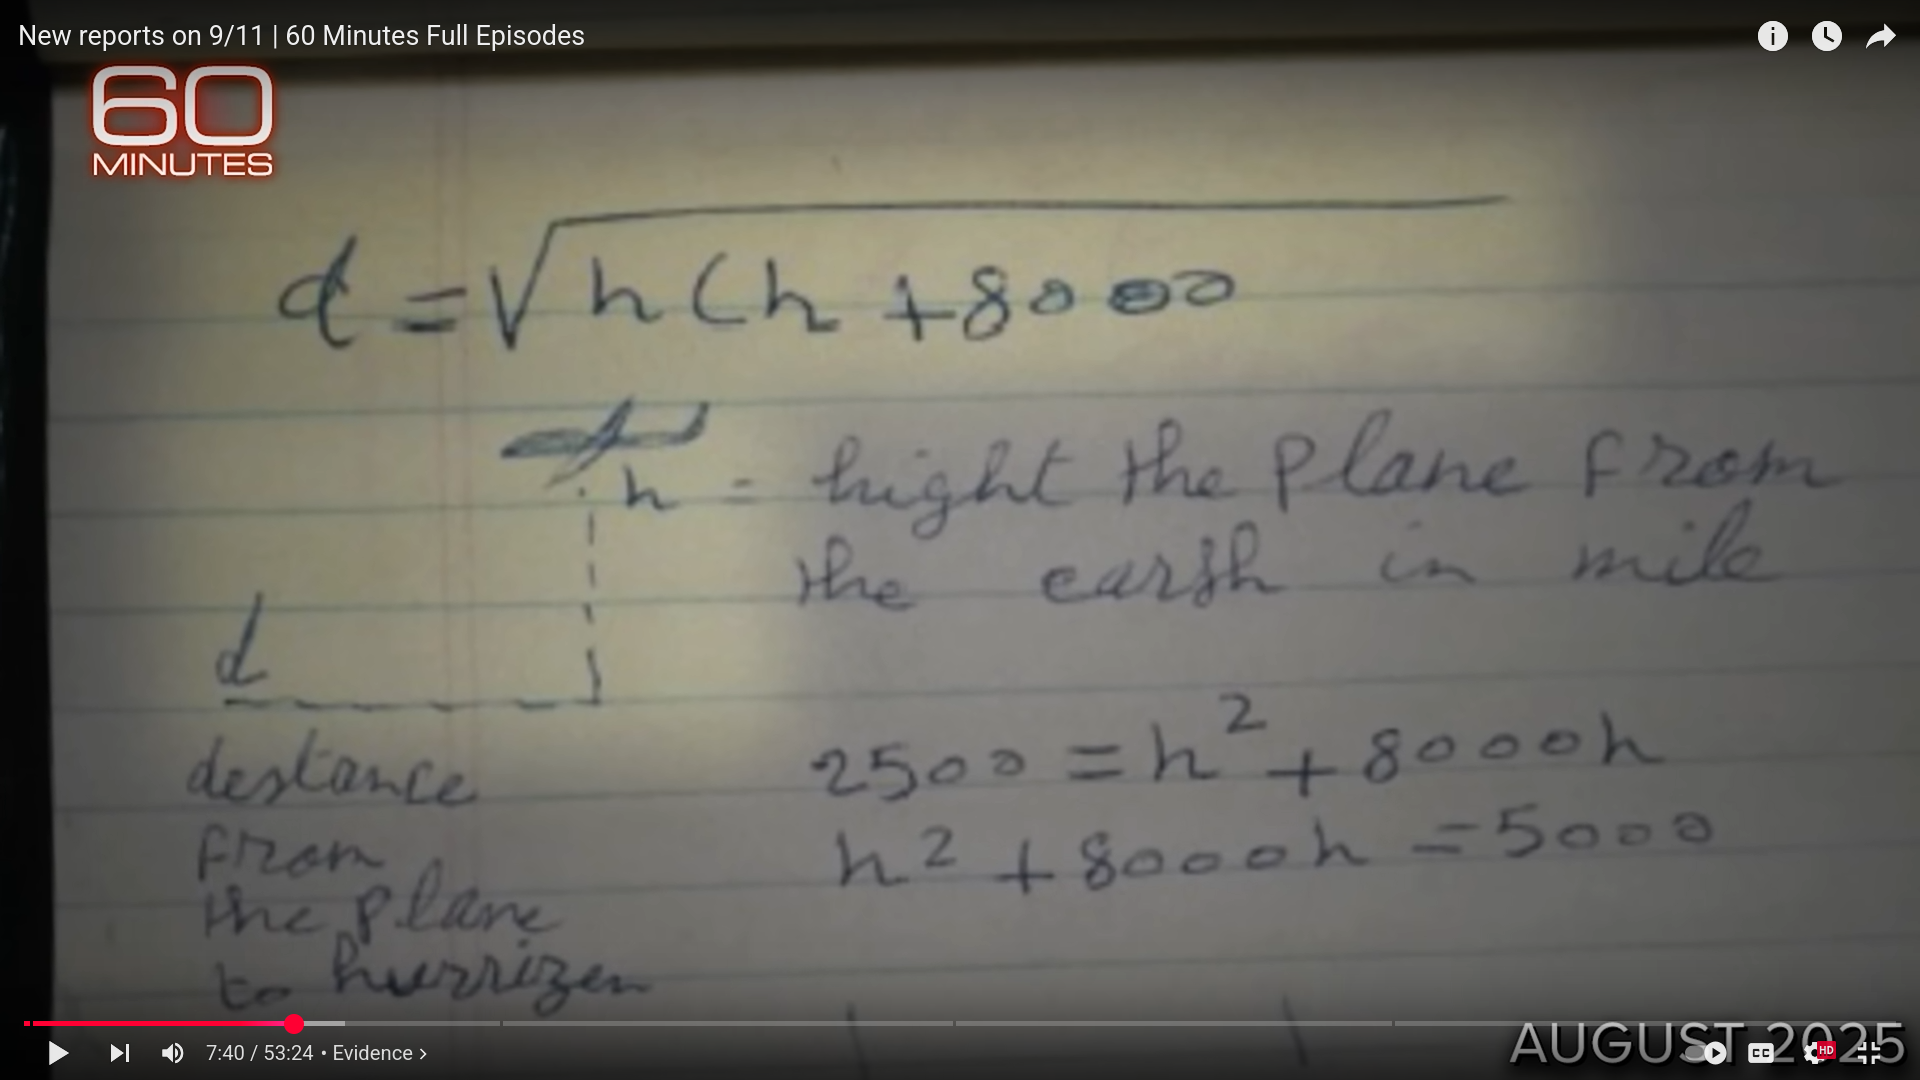 New reports on 9/11 | 60 Minutes Full Episodes
60
MINUTES
d = √h(h + 8000
h = hight the plane from
the earth in mile
d
destance
from
the plane
to hurrizen
2500 = h² + 8000h
h² + 8000h = 5000
AUGUST 2025
7:40 / 53:24 • Evidence ›
CC
HD